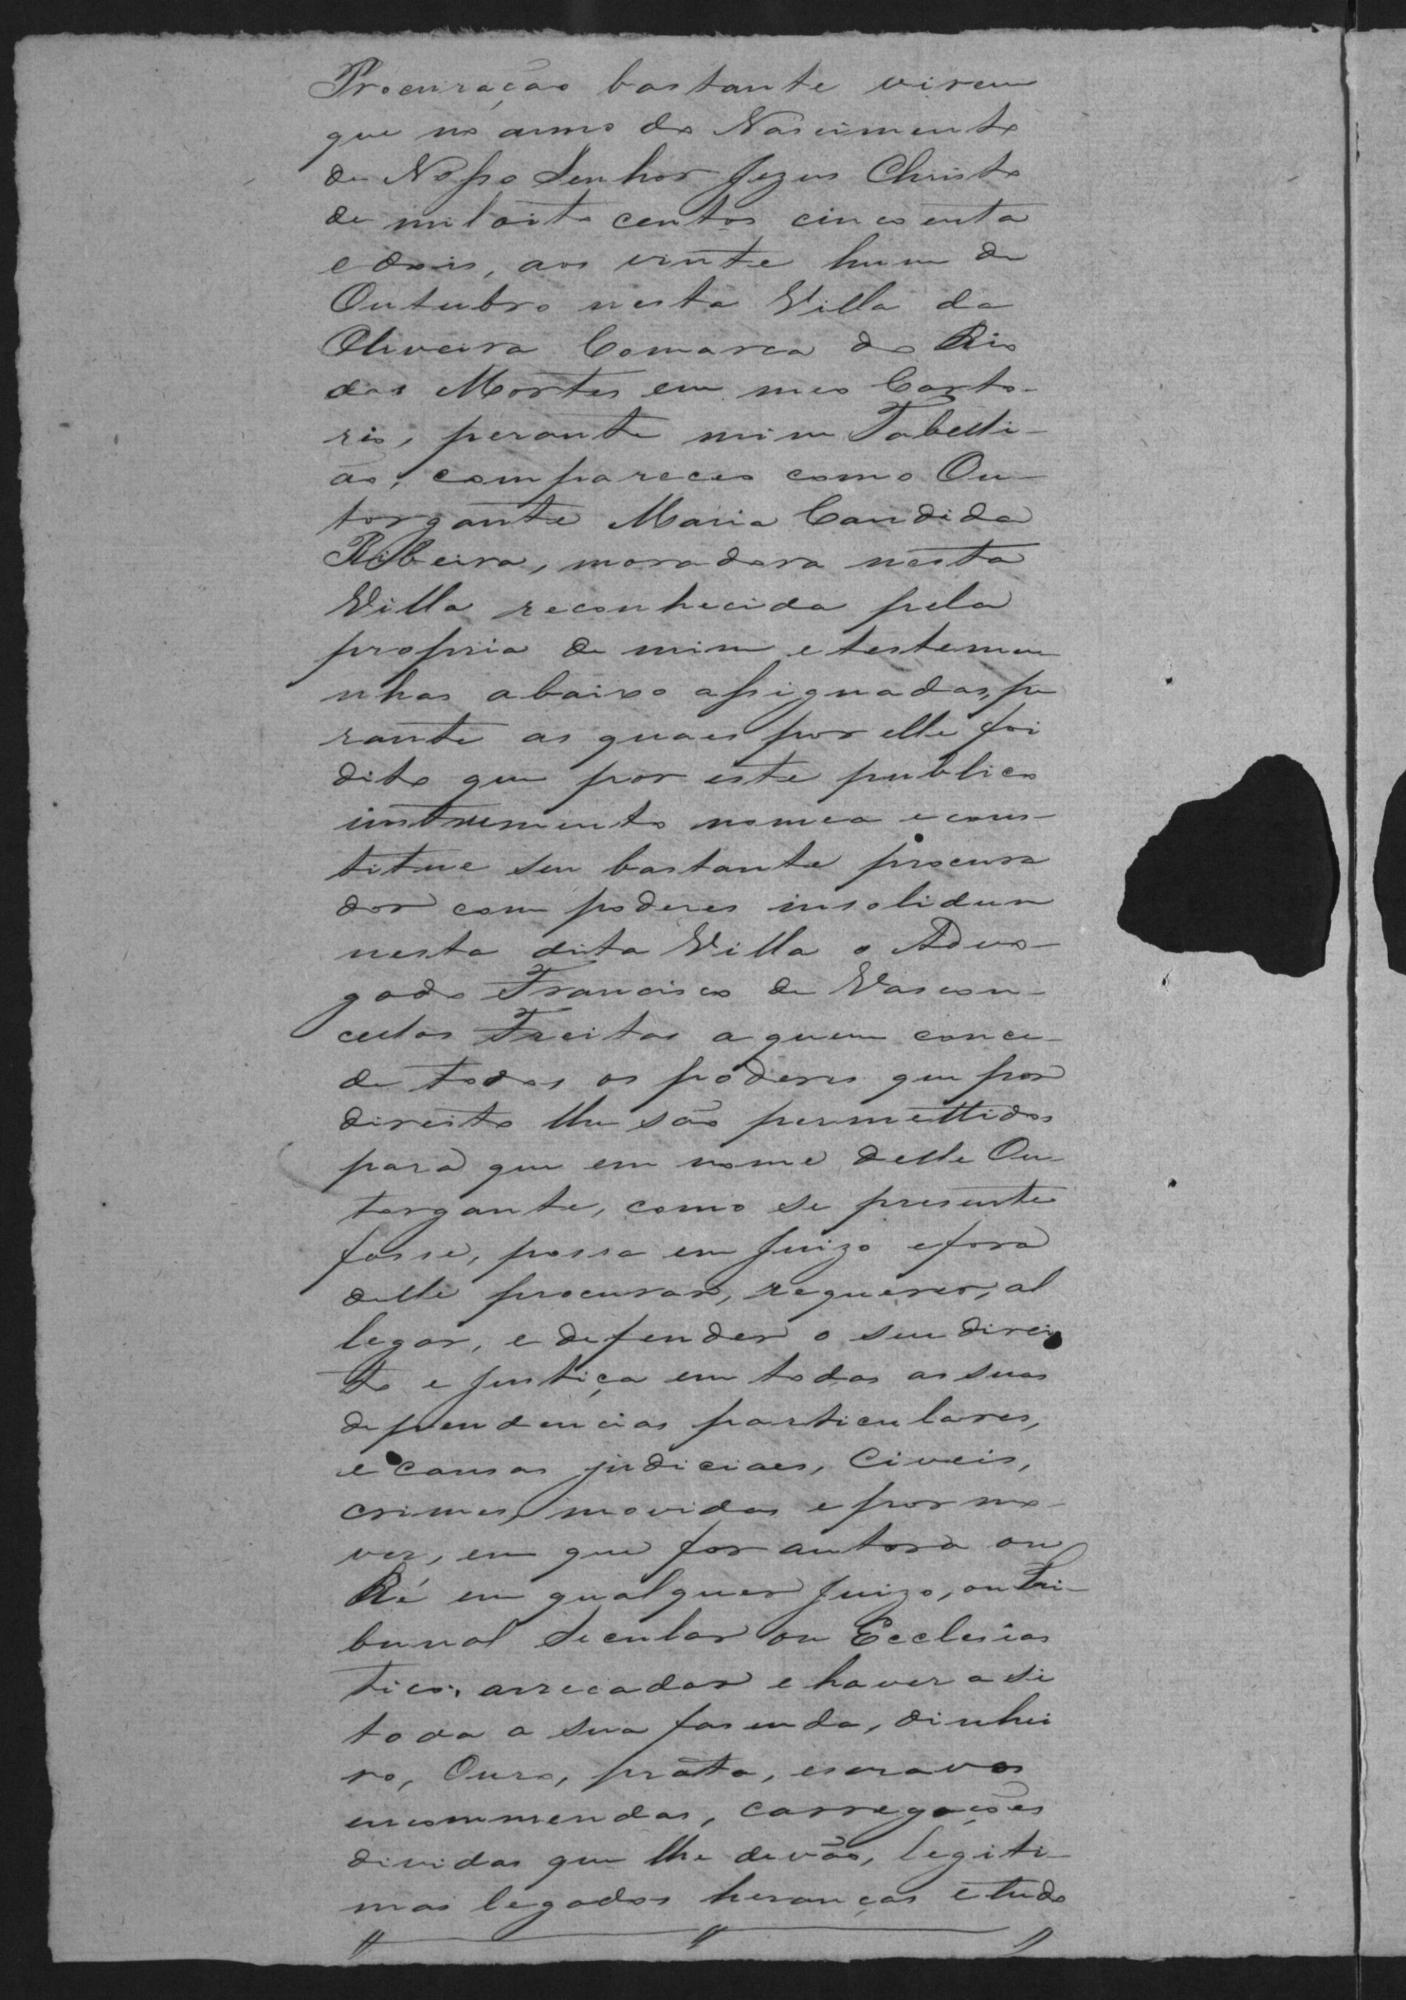 Procuração bastante virem
que no anno do Nascimento
de Nosso Senhor Jezus Christo
de mil oito centos cincoenta
e dois, aos vinte hum de
Outubro nesta Villa da
Oliveira Comarca do Rio
das Mortes em meo Carto-
rio, perante mim Tabelli-
ão, compareceo como Ou-
torgante Maria Candida
Ribeira, moradora nesta
Villa reconhecida pela
propria de mim e testemu
nhas abaixo assignadas, pe
rante as quaes por elle foi
dito que por este publico
instrumento nomea e cons-
titue seu bastante procura
dor com poderes insolidum
nesta dita Villa o Advo-
gado Francisco de Vascon-
cellos Freitas a quem conce-
de todos os poderes que por
direito lhe são permettidos
para que em nome delle Ou-
torgante, como se presente
fosse, possa em Juizo e fora
delle procurar, requerer, al
legar, e defender o seu direi
to e justiça em todas as suas
dependencias particulares,
e causas judiciaes, Civeis,
crimes, movidas e por mo-
ver, em que for autora ou
Ré em qualquer Juizo, ou Tri-
bunal Secular ou Ecclesias
tico, arrecadar e haver a si
toda a sua fasenda, dinhei
ro, Ouro, prata, escravos
encommendas, carregações
dividas que lhe devão, legiti-
mas legados heranças e tudo